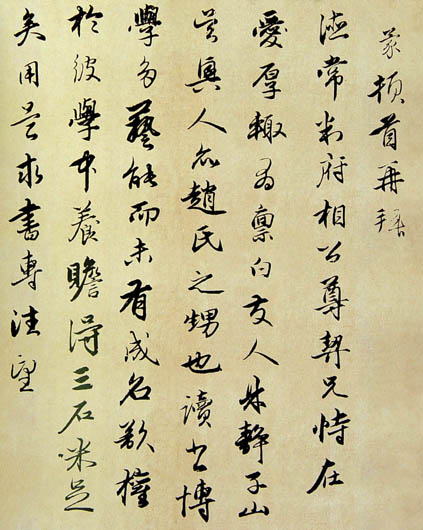 蒙頓首再拜
德常判府相公尊契兄恃在
愛厚輙為稟白友人靜子山
吳興人亦趙氏之甥也讀書博
學多藝能而未有成名欲權
於彼學中養贍得三石米足
矣用是求書專注望